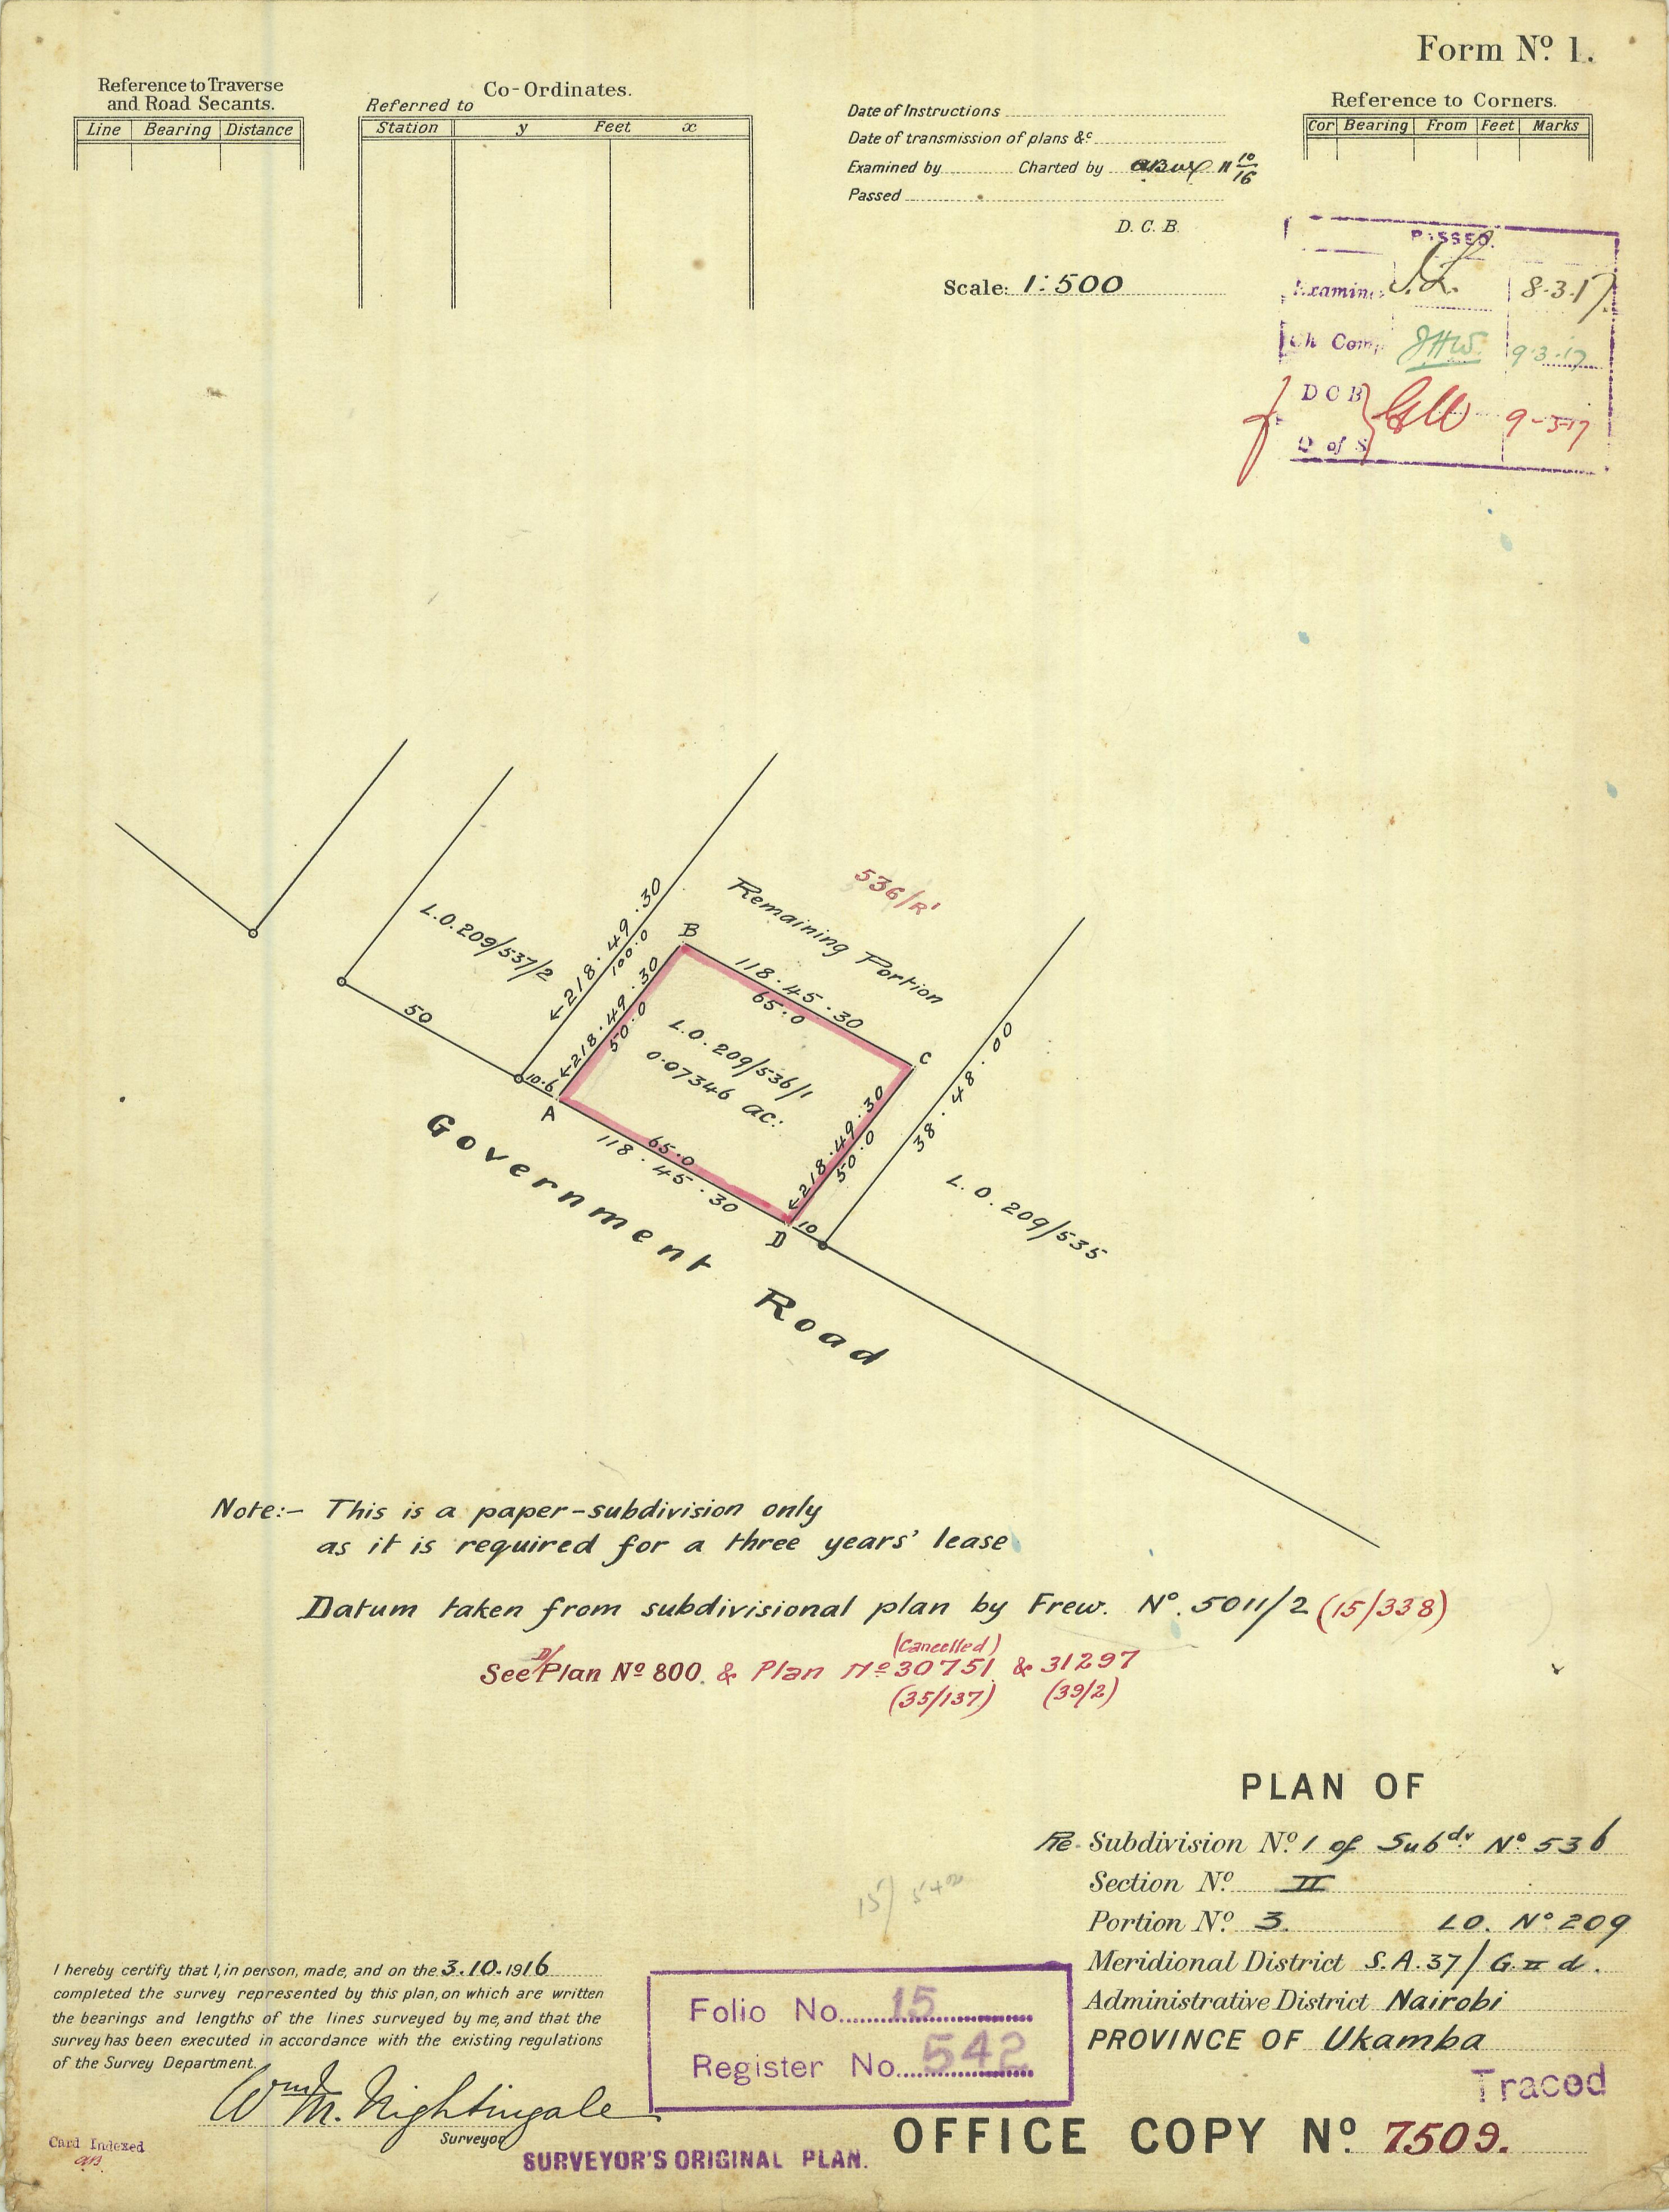 Form Nº 1.
Reference to Traverse
and Road Secants.
Line Bearing Distance
Co-Ordinates.
Referred to
Station y Feet x
Date of Instructions
Date of transmission of plans &c
Examined by Charted by 11 10/16
Passed
D. C. B.
Scale: 1:500
Reference to Corners.
Cor Bearing From Feet Marks
PASSED.
Examine 8.3.17
Ch Comp JHW. 9.3.17
D C B
D of S 9-3-17
536/R'
Remaining Portion
L.O. 209/537/2
←218.49.30
100.0
50
10.6
←218.49.30
50.0
B
118.45.30
65.0
C
L.O. 209/536/1
0.07346 ac:
A
65.0
118.45.30
←218.49.30
50.0
D
10
38.48.00
L.O. 209/535
Government Road
Note:- This is a paper-subdivision only
as it is required for a three years' lease
Datum taken from subdivisional plan by Frew. Nº. 5011/2 (15/338)
(Cancelled)
See D/Plan Nº 800. & Plan Nº 30751 & 31297
(35/137) (39/2)
PLAN OF
Re-Subdivision Nº 1 of Subdv Nº 536
Section Nº II
Portion Nº 3. LO. Nº 209
Meridional District S.A. 37/G. II d.
Administrative District Nairobi
PROVINCE OF Ukamba
Traced
15/542
I hereby certify that I, in person, made, and on the 3.10.1916
completed the survey represented by this plan, on which are written
the bearings and lengths of the lines surveyed by me, and that the
survey has been executed in accordance with the existing regulations
of the Survey Department.
Wm M. Nightingale
Surveyor
Folio No. 15
Register No. 542
Card Indexed
SURVEYOR'S ORIGINAL PLAN.
OFFICE COPY Nº 7509.